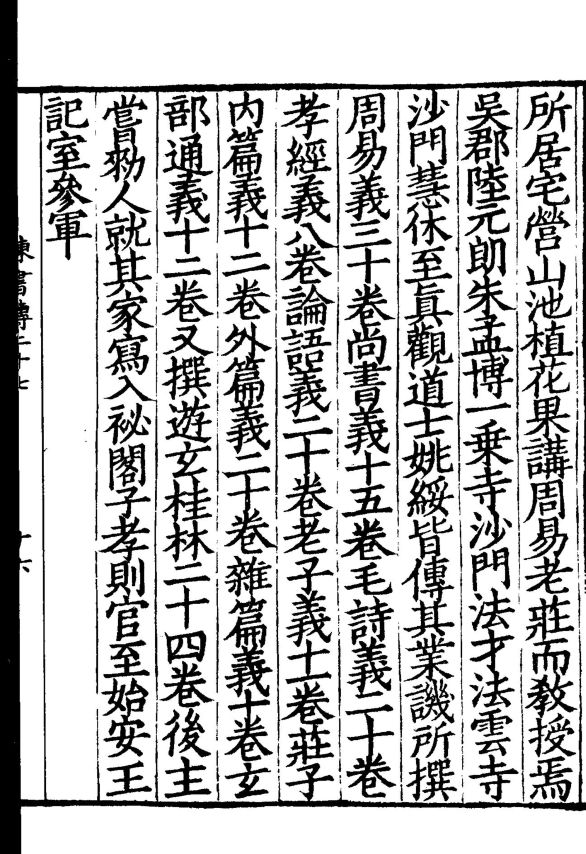 所居宅營山池植花果講周易老莊而敎授焉
吳郡陸元朗朱孟博一乗寺沙門法才法雲寺
沙門慧休至眞觀道士姚綏皆傳其業譏所撰
周易義三十卷尚書義十五卷毛詩義二十卷
孝經義八卷論語義二十卷老子義十一卷莊子
内篇義十二卷外篇義二十卷雜篇義十卷玄
部通義十二卷又撰遊玄桂林二十四卷後主
嘗勑人就其家寫入祕閣子孝則官至始安王
記室參軍
陳書傳二十七
十六